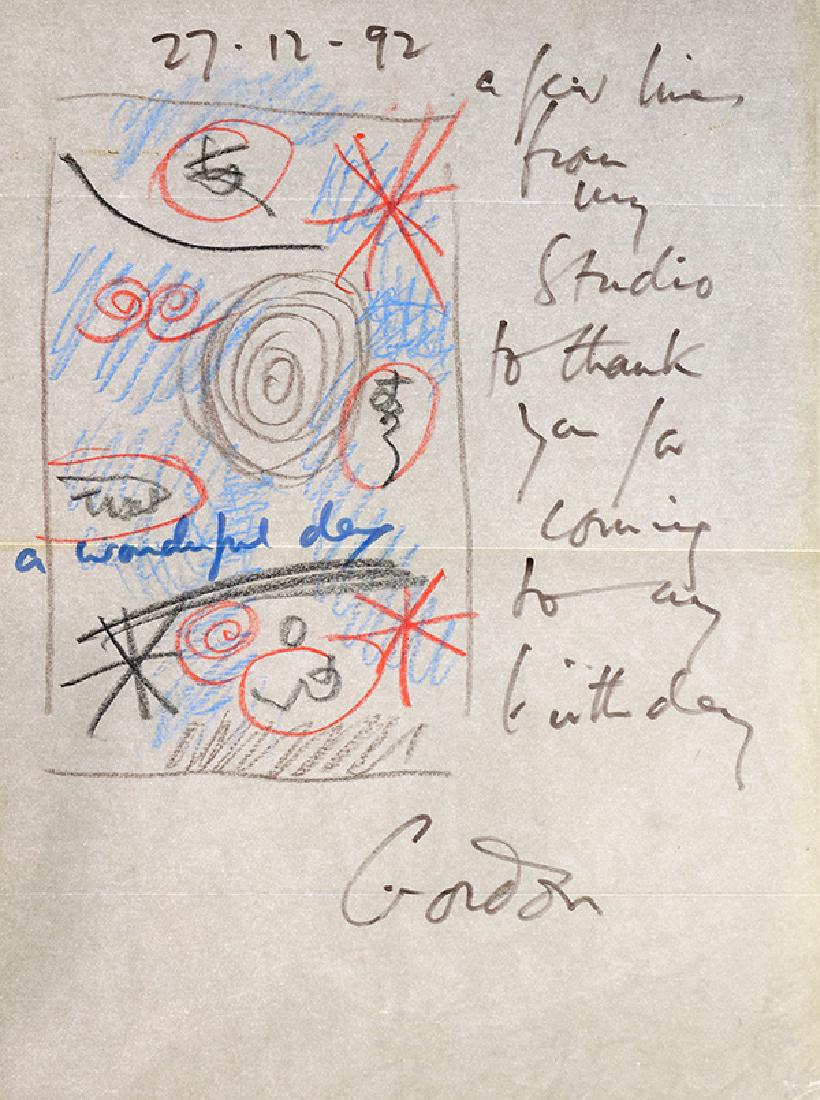 27.12-92
a few lines
from
my
Studio
to thank
you for
coming
to my
birthday
a wonderful day
Gordon